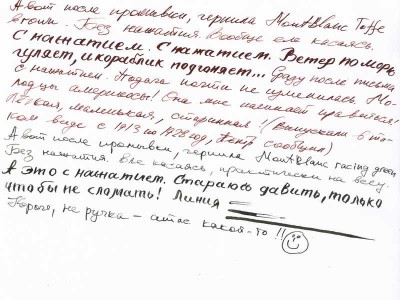 А вот после промывки, чернила MontBlanc Toffe
Brown. Без нажатия. Вообще еле касаясь.
С нажатием. С нажатием. Ветер по морю
гуляет, и кораблик подгоняет... Фазу после письма
с нажатием. Подача почти не изменилась. Мо-
лодцы американцы! Она мне начинает нравиться!
Лёгкая, маленькая, старенькая! (Выпускали в та-
ком виде с 1913 по 1928 год, Пётр сообщил)
А вот после промывки, чернила MontBlanc racing green
Без нажатия. Еле касаясь, практически на весу.
А это с нажатием. Стараюсь давить, только
чтобы не сломать! Линия
Короче, не ручка – атас какой-то!!